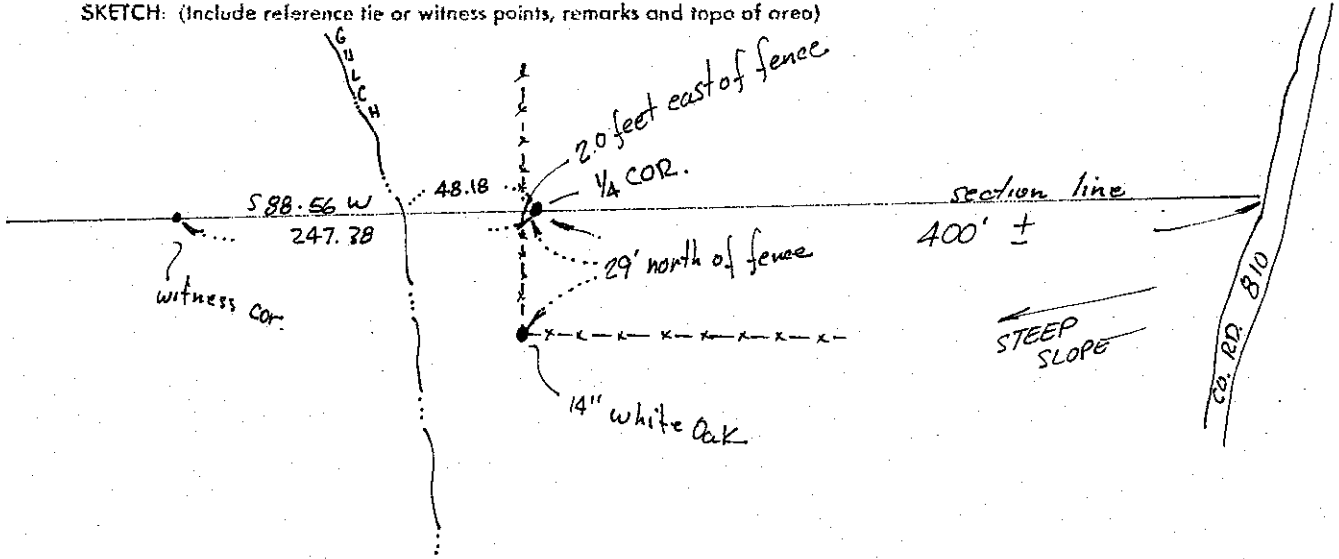 SKETCH: (Include reference tie or witness points, remarks and topo of area)
GULCH
2.0 feet east of fence
1/4 COR.
48.18
S 88.56 W
247.38
section line
400' ±
29' north of fence
witness cor.
STEEP
SLOPE
CO. RD. 810
14" white Oak